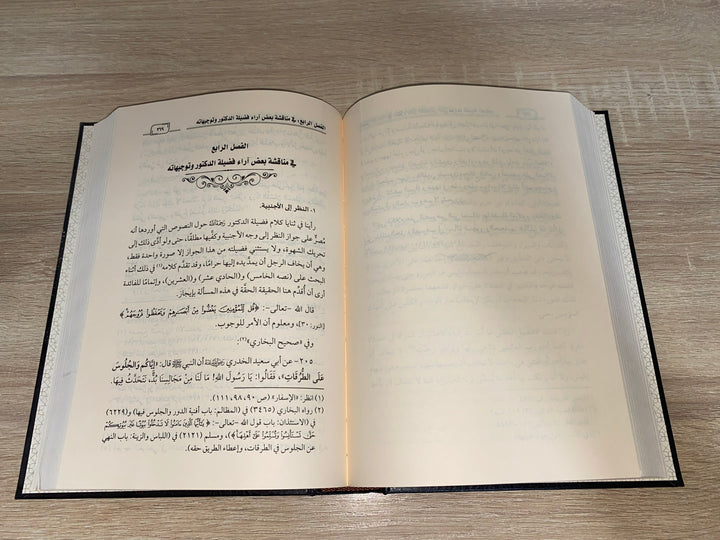 الفصل الرابع: في مناقشة بعض آراء فضيلة الدكتور وتوجيهاته
٢٦٩
الفصل الرابع
في مناقشة بعض آراء فضيلة الدكتور وتوجيهاته
١- النظر إلى الأجنبية.
رأينا في ثنايا كلام فضيلة الدكتور رحمه الله حول النصوص التي أوردها أنه
مُصرٌّ على جواز النظر إلى وجه الأجنبية وكفَّيها مطلقًا، حتى ولو أدَّى ذلك إلى
تحريك الشهوة، ولا يستثني فضيلته من هذا الجواز إلا صورة واحدة فقط،
وهي أن يخاف الرجل أن يمدَّ يده إليها حرامًا، وقد تقدَّم كلامه(١) في ذلك أثناء
البحث على (نصه الخامس) و(الحادي عشر) و(العشرين)، وإتمامًا للفائدة
أرى أن أُقدِّم هنا الحقيقة الحقَّة في هذه المسألة بإيجاز.
قال الله -تعالى-: ﴿قُل لِّلْمُؤْمِنِينَ يَغُضُّوا مِنْ أَبْصَارِهِمْ وَيَحْفَظُوا فُرُوجَهُمْ﴾
[النور: ٣٠]، ومعلوم أن الأمر للوجوب.
وفي «صحيح البخاري»(٢):
٢٠٥- عن أبي سعيد الخدري رضي الله عنه أن النبي ﷺ قال: «إِيَّاكُم وَالْجُلُوسَ
عَلَى الطُّرُقَاتِ»، فَقَالُوا: يَا رَسُولَ اللهِ! مَا لَنَا مِنْ مَجَالِسِنَا بُدٌّ، نَتَحَدَّثُ فِيهَا.
(١) انظر: «الإسفار» (ص ٩٠، ٩٨، ١١١).
(٢) رواه البخاري (٢٤٦٥) في (المظالم: باب أفنية الدور والجلوس فيها) و(٦٢٢٩)
في (الاستئذان: باب قول الله -تعالى-: ﴿يَا أَيُّهَا الَّذِينَ آمَنُوا لَا تَدْخُلُوا بُيُوتًا غَيْرَ بُيُوتِكُمْ
حَتَّى تَسْتَأْنِسُوا وَتُسَلِّمُوا عَلَى أَهْلِهَا﴾)، ومسلم (٢١٢١) في (اللباس والزينة: باب النهي
عن الجلوس في الطرقات، وإعطاء الطريق حقه).